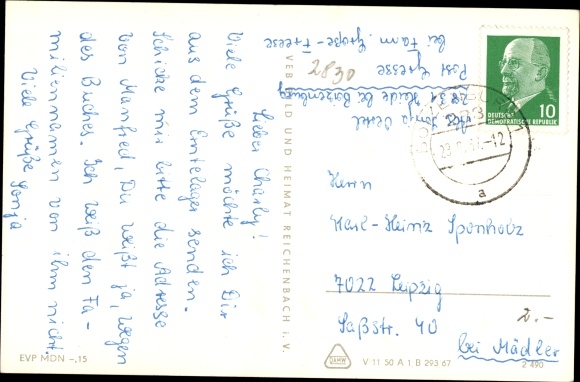 Lieber Charly!
Viele Grüße möchte ich Dir
aus dem Erntelager senden.
Schicke mir bitte die Adresse
von Manfred, Du weißt ja, wegen
des Buches. Ich weiß den Fa-
miliennamen von ihm nicht.
Viele Grüße Sonja
VEB BILD UND HEIMAT REICHENBACH i. V.
EVP MDN -,15
Sonja
Heide bei Boizenburg
Post Gresse
bei Fam. Große-Freese
2830
10
DEUTSCHE
DEMOKRATISCHE REPUBLIK
a
Herrn
Karl-Heinz Sponholz
7022 Leipzig
Saßstr. 40
bei Mädler
2.-
DAMW
V 11 50 A 1 B 293 67
2 490